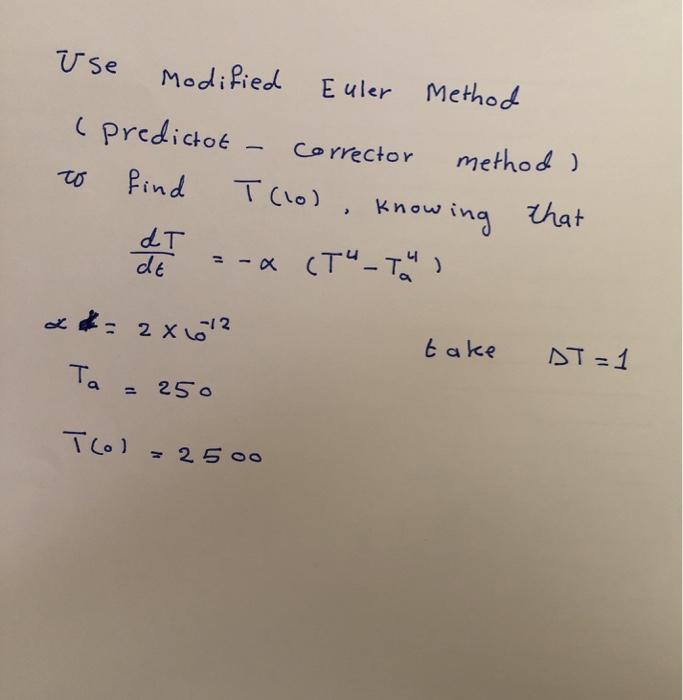 Use Modified Euler Method
(predictot - corrector method)
to find T(10), knowing that
dT/dt = -α (T⁴ - Tₐ⁴)
α = 2 × 10⁻¹² take ΔT = 1
Tₐ = 250
T(0) = 2500